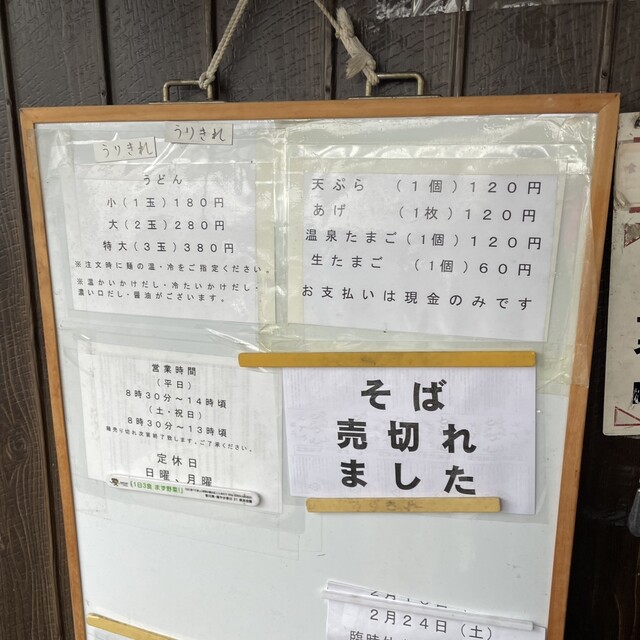 うりきれ
うりきれ
うどん
小(1玉)180円
大(2玉)280円
特大(3玉)380円
※注文時に麺の温・冷をご指定ください。
※温かいかけだし・冷たいかけだし・
濃い口だし・醤油がございます。
天ぷら (1個)120円
あげ (1枚)120円
温泉たまご(1個)120円
生たまご (1個)60円
お支払いは現金のみです
営業時間
(平日)
8時30分〜14時頃
(土・祝日)
8時30分〜13時頃
麺売り切れ次第終了致します。ご了承ください。
定休日
日曜、月曜
そば
売切れ
ました
《1日3食 まず野菜!》
2月24日(土)